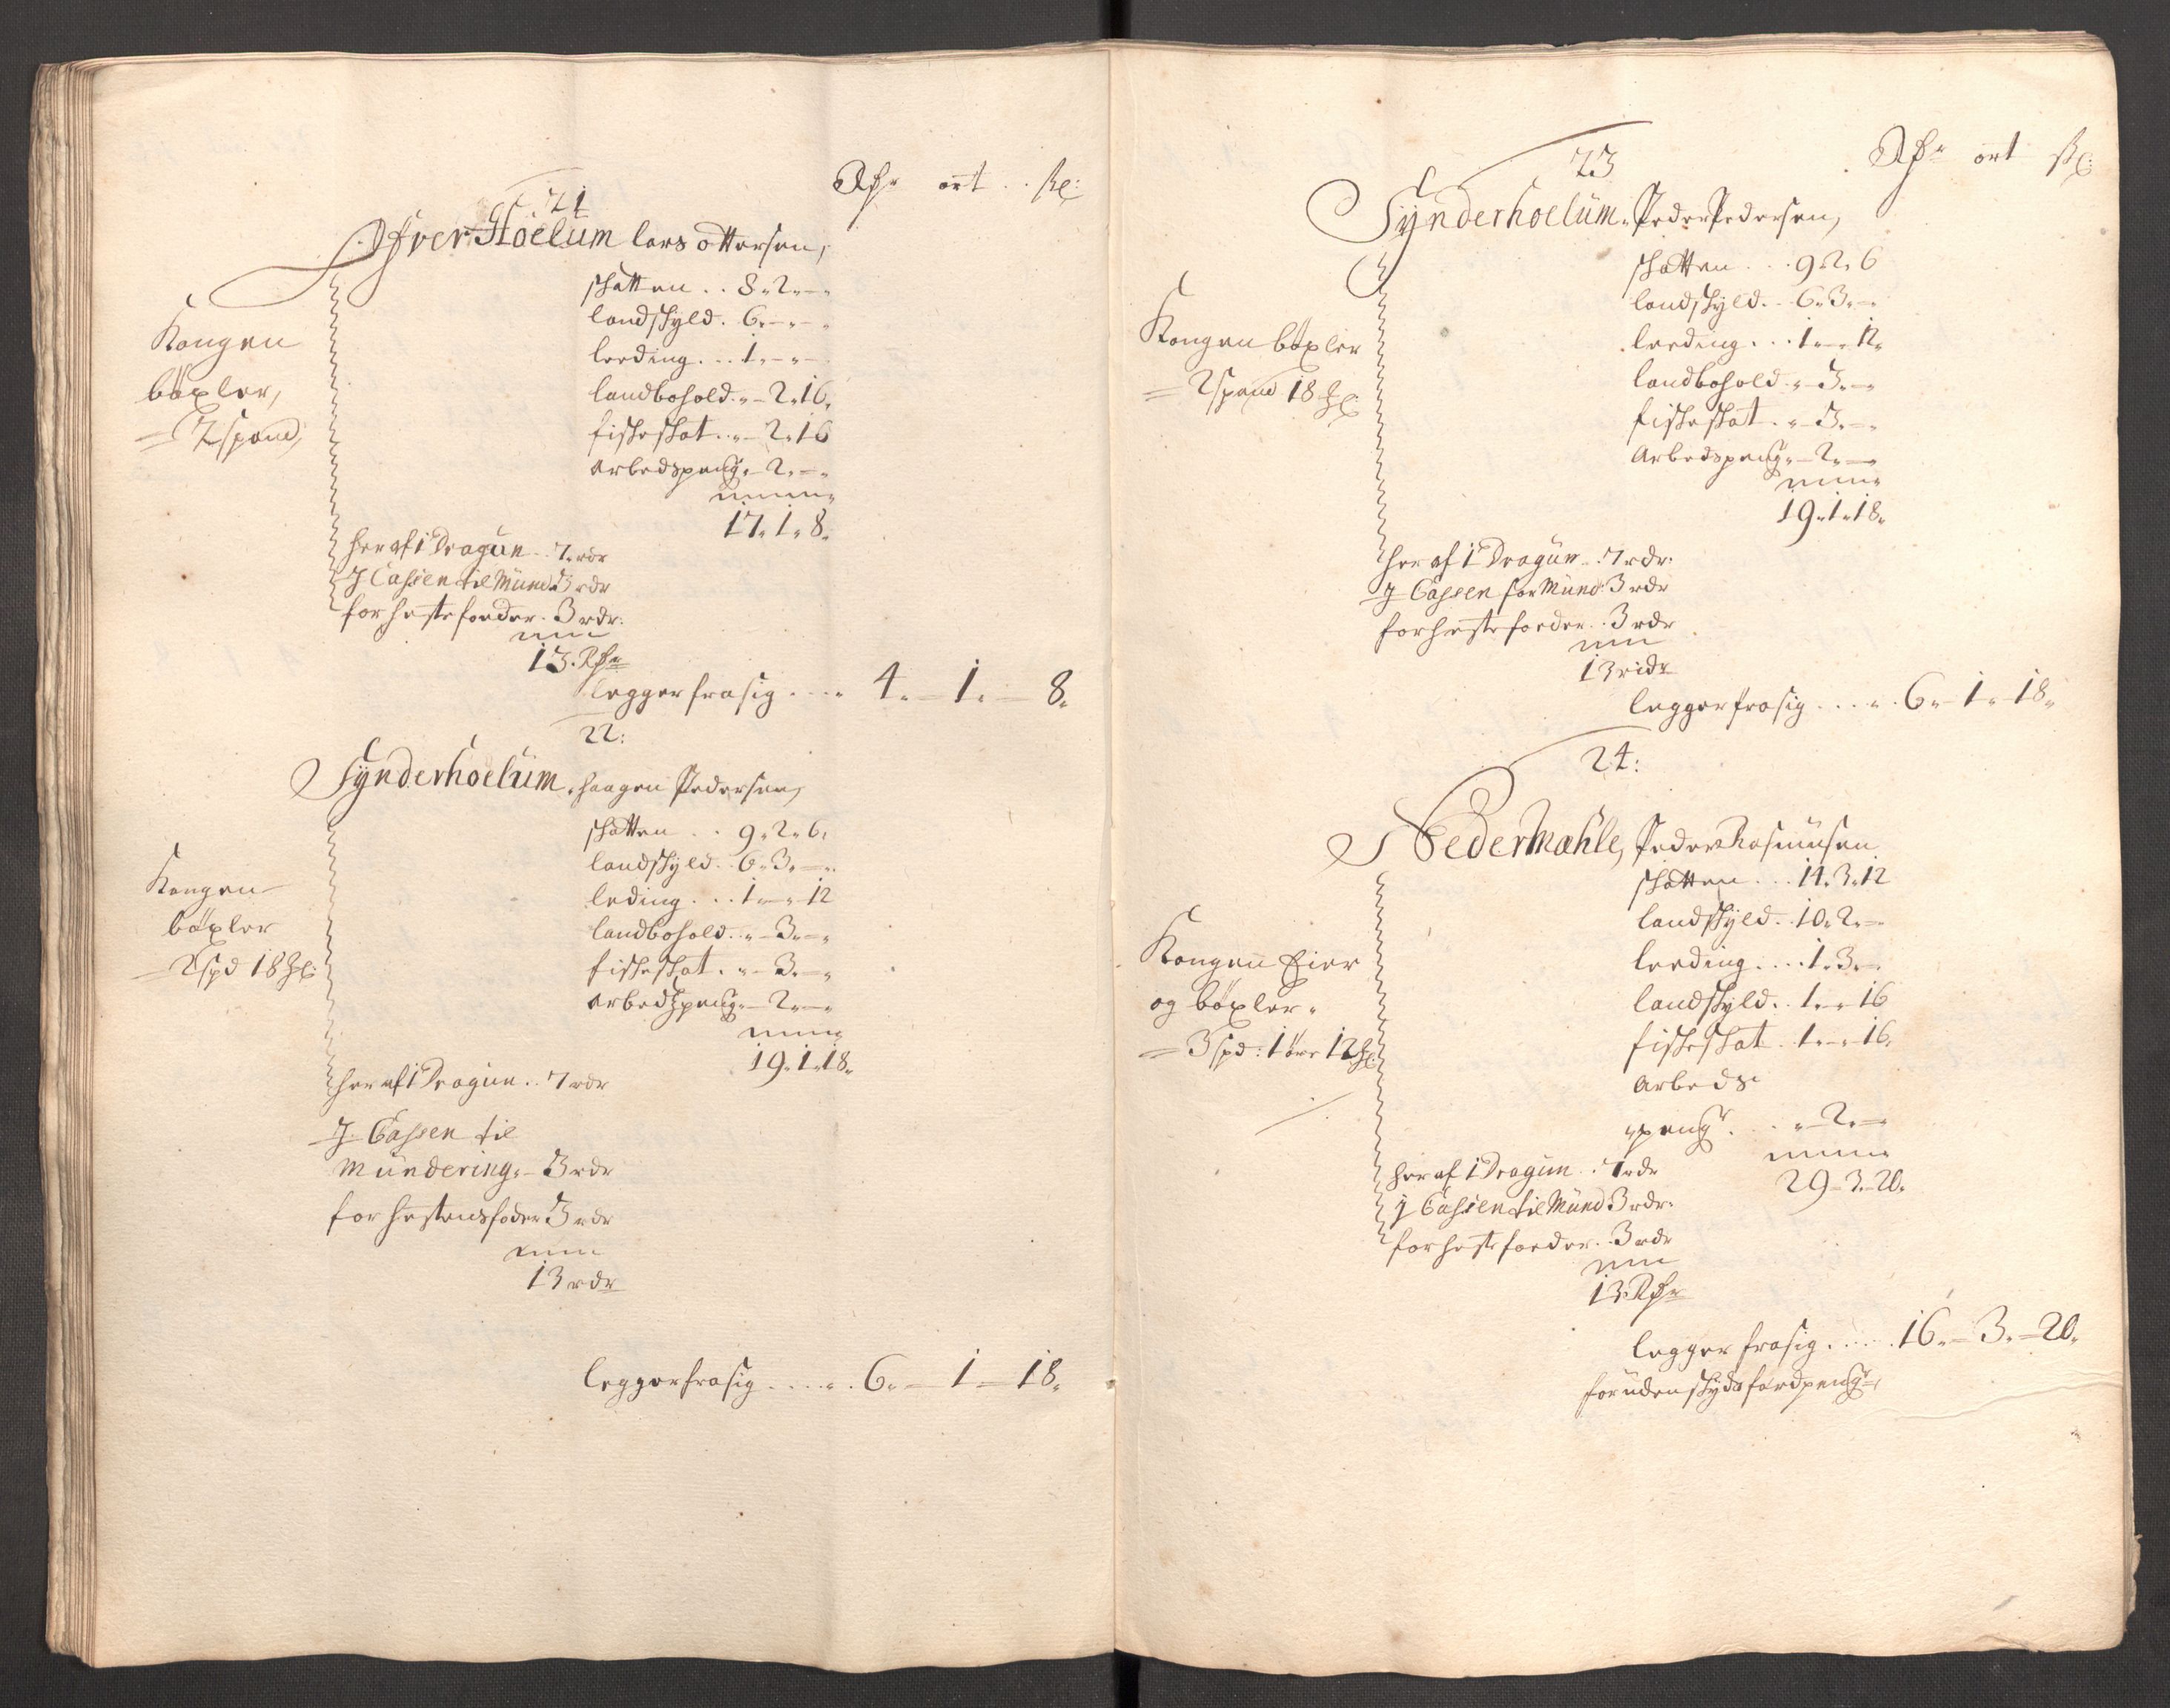 Rdr ort sk:
21
Øfver Hoelum lars ottersen,
Kongen
böxler,
= 2 spand,
skatten . . 8. 2. –
landskyld . 6. – –
leeding . . . 1. – –
landbohold . – 2. 16.
fiskeskat . . – 2. 16
arbedspeng. – 2. –
17. 1. 8.
her af 1 Dragun . . 7 rdr
J Cassen til Mund. 3 rdr
for hestefoeder . 3 rdr:
13. Rdr
legger fra sig . . . . 4. – 1. – 8.
22:
Synderhoelum, haagen Pedersen,
Kongen
böxler
= 2 spd 18 mkl:
skatten . . 9. 2. 6.
landskyld . . 6. 3. –
leding . . . 1 – 12
landbohold . . – 3. –
fiskeskat . – 3. –
arbedspeng. – 2. –
19. 1. 18.
her af 1 Dragun . . 7 rdr
J. Cassen til
Mundering. – 3 rdr
for hestensfoder 3 rdr
13 rdr
legger fra sig . . . . . 6. – 1 – 18.
Rdr ort sk:
23
Synderhoelum, Peder Pedersen,
Kongen böxler
= 2 spand 18 mkl:
skatten . . . 9. 2. 6
landskyld . . 6. 3. –
leeding . . . 1. – 12.
landbohold . – 3. –
fiskeskat . – 3. –
Arbedspeng. – 2. –
19. 1. 18.
her af 1 Dragun . . 7 rdr.
J Cassen for Mund: 3 rdr
for hestefoeder . . 3 rdr
13 ridr
legger fra sig . . . . . 6. – 1. – 18.
24:
Nedermæhle, Peder Rasmusen
Kongen Eier
og böxler.
= 3 spd: 1 öre 12 mkl:
skatten . . . 14. 3. 12
landskyld . . 10. 2. –
leeding . . . . 1. 3. –
landskyld . . 1. – 16
fiskeskat . 1. – 16.
Arbeds-
peng . . . – 2. –
29 – 3. – 20.
her af 1 Dragun . . 7 rdr
J Cassen til Mund 3 rdr.
for hestefoeder . . 3 rdr
13. Rdr
legger fra sig . . . . . 16. – 3. – 20.
foruden skydsfærdpeng.